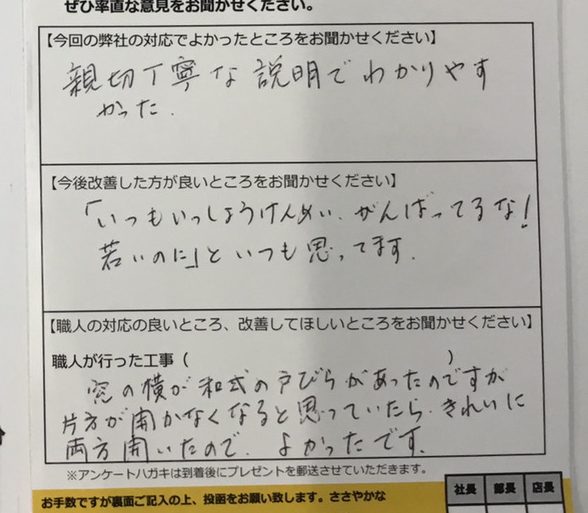 ぜひ率直な意見をお聞かせください。
【今回の弊社の対応でよかったところをお聞かせください】
親切丁寧な説明でわかりやす
かった.
【今後改善した方が良いところをお聞かせください】
「いつもいっしょうけんめい、がんばってるな!
若いのに」といつも思ってます.
【職人の対応の良いところ、改善してほしいところをお聞かせください】
職人が行った工事( )
窓の横が和式の戸びらがあったのですが
片方が開かなくなると思っていたら、きれいに
両方開いたので、よかったです.
※アンケートハガキは到着後にプレゼントを郵送させていただきます。
お手数ですが裏面ご記入の上、投函をお願い致します。ささやかな
社長 部長 店長